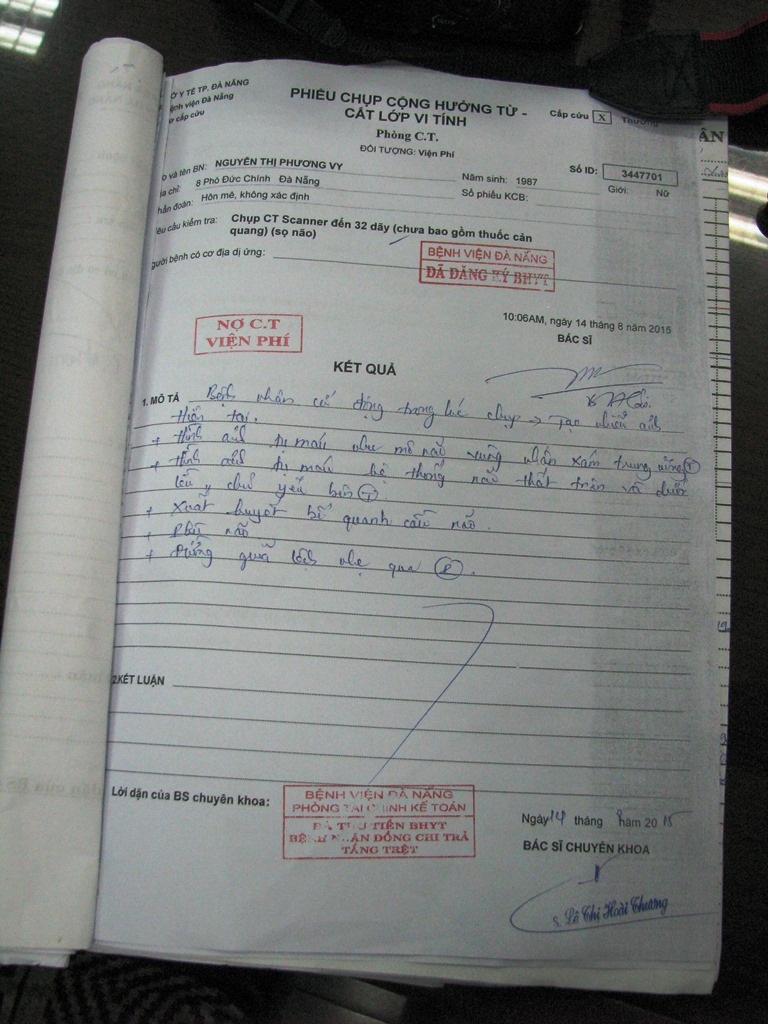 Ở Y TẾ TP. ĐÀ NẴNG
ệnh viện Đà Nẵng
cấp cứu
PHIẾU CHỤP CỘNG HƯỞNG TỪ -
CẮT LỚP VI TÍNH
Phòng C.T.
ĐỐI TƯỢNG: Viện Phí
Cấp cứu X Thường
ÂN
và tên BN: NGUYỄN THỊ PHƯƠNG VY
Năm sinh: 1987
Số ID: 3447701
ịa chỉ: 8 Phó Đức Chính Đà Nẵng
Số phiếu KCB:
Giới: Nữ
hẩn đoán: Hôn mê, không xác định
êu cầu kiểm tra: Chụp CT Scanner đến 32 dãy (chưa bao gồm thuốc cản
quang) (sọ não)
gười bệnh có cơ địa dị ứng:
BỆNH VIỆN ĐÀ NẴNG
ĐÃ ĐĂNG KÝ BHYT
NỢ C.T
VIỆN PHÍ
10:06AM, ngày 14 tháng 8 năm 2015
BÁC SĨ
KẾT QUẢ
1. MÔ TẢ Bệnh nhân cử động trong lúc chụp → Tạo nhiều ảnh
Hiện tại.
+ Hình ảnh tụ máu nhu mô não vùng nhân xám trung ương (T)
+ Hình ảnh tụ máu hệ thống não thất trên và dưới
lều, chủ yếu bên (T)
+ Xuất huyết bể quanh cầu não.
+ Phù não
+ Đường giữa lệch nhẹ qua (P).
2.KẾT LUẬN
Lời dặn của BS chuyên khoa:
BỆNH VIỆN ĐÀ NẴNG
PHÒNG TÀI CHÍNH KẾ TOÁN
ĐÃ THU TIỀN BHYT
BỆNH NHÂN ĐỒNG CHI TRẢ
TẦNG TRỆT
Ngày 14 tháng 8 năm 2015
BÁC SĨ CHUYÊN KHOA
s. Lê Thị Hoài Thương